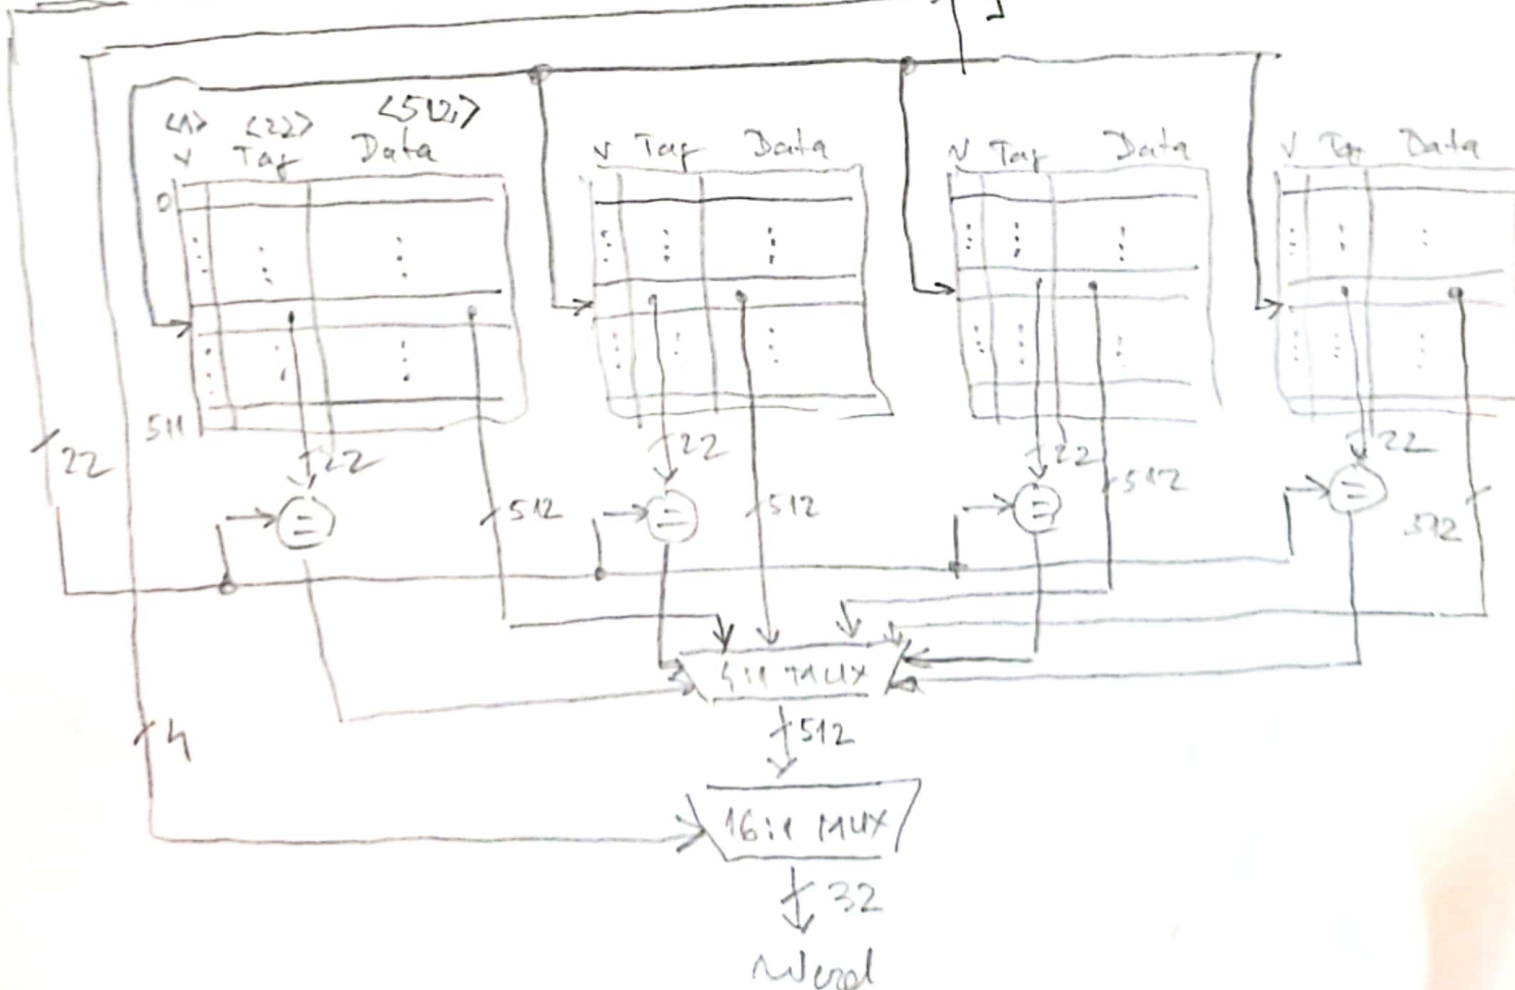 <1> <22> <512>
V Tag Data V Tag Data V Tag Data V Tag Data
0
511
22 22 22 22 22
512 512 512 512
4:1 MUX
4 512
16:1 MUX
32
Word